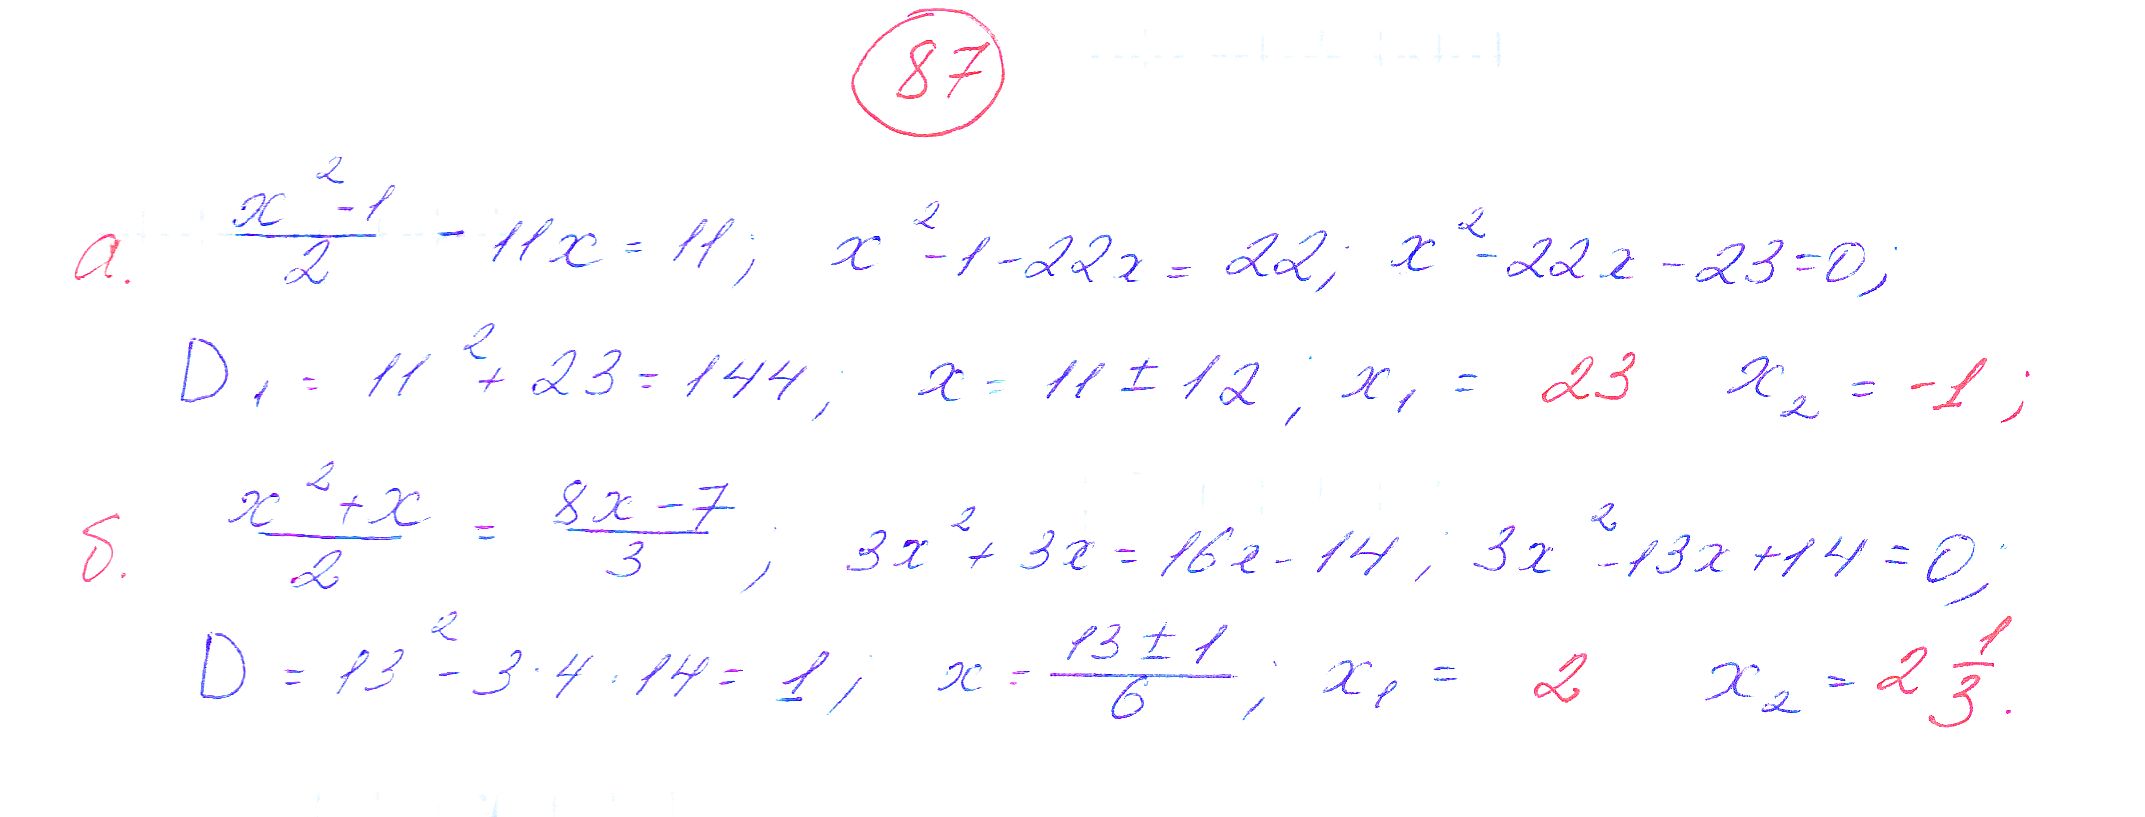 87
а. (x²-1)/2 - 11x = 11; x²-1-22x = 22; x²-22x-23=0;
D₁ = 11²+23=144; x = 11±12; x₁ = 23 x₂ = -1;
б. (x²+x)/2 = (8x-7)/3; 3x²+3x=16x-14; 3x²-13x+14=0;
D = 13²-3·4·14=1; x = (13±1)/6; x₁ = 2 x₂ = 2 1/3.